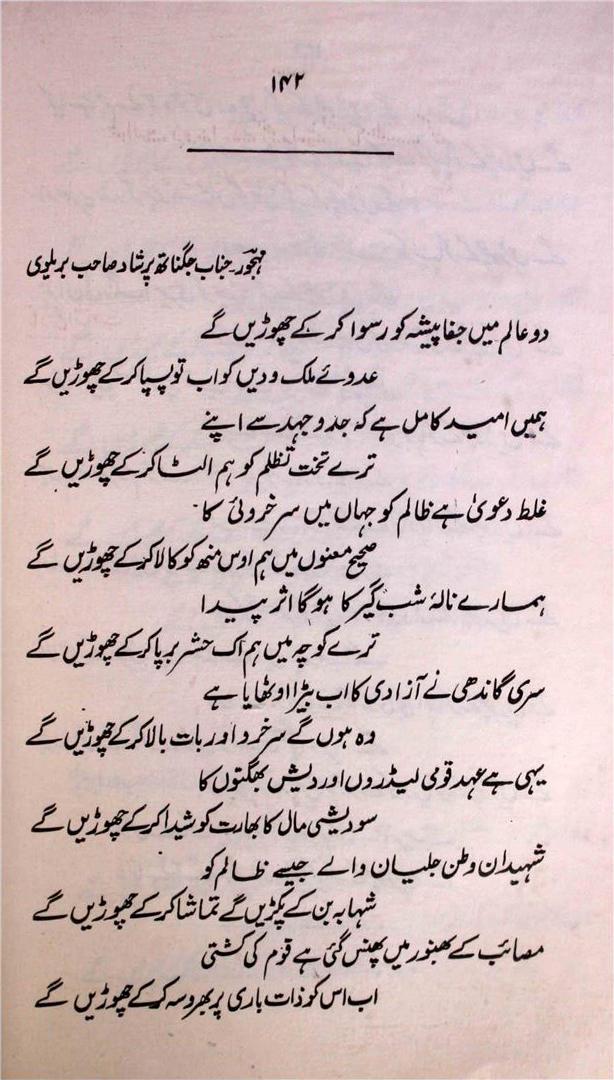 ۱۴۲
مہجور۔ جناب جگناتھ پرشاد صاحب بریلوی
دو عالم میں جفا پیشہ کو رسوا کر کے چھوڑیں گے
عدوئے ملک و دیں کو اب تو پسپا کر کے چھوڑیں گے
ہمیں امید کامل ہے کہ جد و جہد سے اپنے
ترے تخت تظلم کو ہم الٹا کر کے چھوڑیں گے
غلط دعویٰ ہے ظالم کو جہاں میں سرخروئی کا
صحیح معنوں میں ہم اوس منھ کو کالا کر کے چھوڑیں گے
ہمارے نالۂ شب گیر کا ہوگا اثر پیدا
ترے کوچہ میں ہم اک حشر برپا کر کے چھوڑیں گے
سری گاندھی نے آزادی کا اب بیڑا اوٹھایا ہے
وہ ہوں گے سرخرو اور بات بالا کر کے چھوڑیں گے
یہی ہے عہد قومی لیڈروں اور دیش بھگتوں کا
سودیشی مال کا بھارت کو شیدا کر کے چھوڑیں گے
شہیدان وطن جلیان والے جیسے ظالم کو
شہابہ بن کے پکڑیں گے تماشا کر کے چھوڑیں گے
مصائب کے بھنور میں پھنس گئی ہے قوم کی کشتی
اب اس کو ذات باری پر بھروسہ کر کے چھوڑیں گے